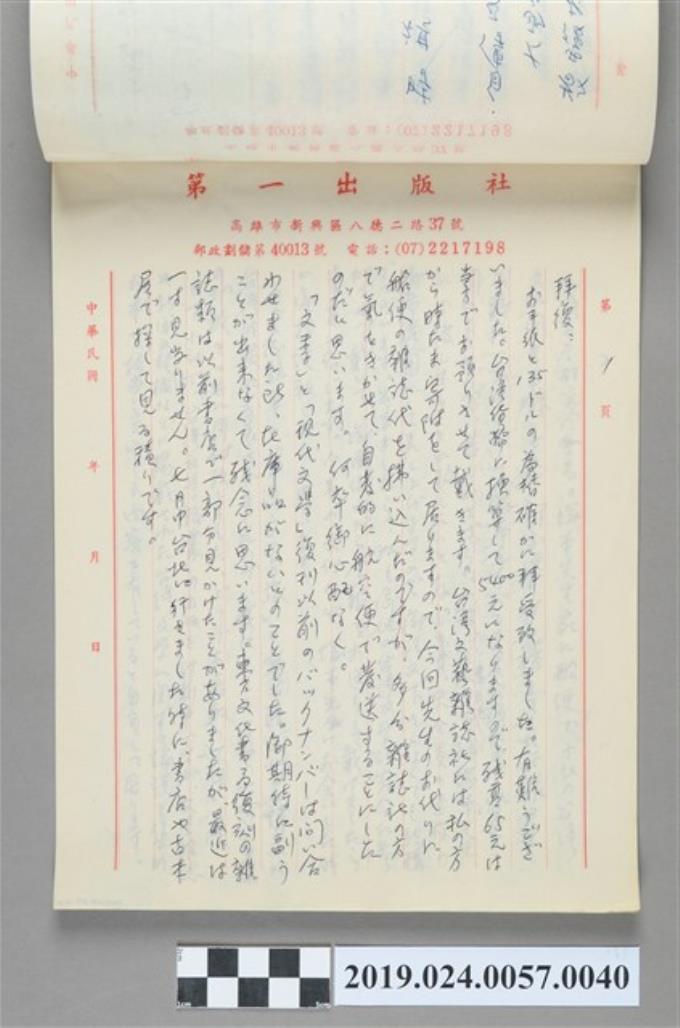 第一出版社
高雄市新興區八德二路37號
郵政劃儲第40013號 電話：(07)2217198
第 1 頁
拝復：
お手紙と135ドルの為替確かに拝受致しました。有難うござ
いました。台湾紙幣に換算して5400元になりますので、残高65元は
当方でお預りさせて戴きます。台湾文藝雜誌社には私の方
から時たま寄附をして居りますので、今回先生のお代りに
船便の雑誌代を拂い込んだのですが、多分雑誌社の方
で氣をきかせて自発的に航空便で發送することにした
のだと思います。何卒御心配なく。
「文季」と「現代文學」復刊以前のバックナンバーは問い合
わせました所、在庫品がないとのことでした。御期待に副う
ことが出来なくて残念に思います。東方文化書局復刻の雑
誌類は以前書店で一部分見かけたことがありましたが、最近は
一寸見当りません。七月中台北に行きました時に、書店や古本
屋で探して見る積りです。
中華民國 年 月 日
2019.024.0057.0040